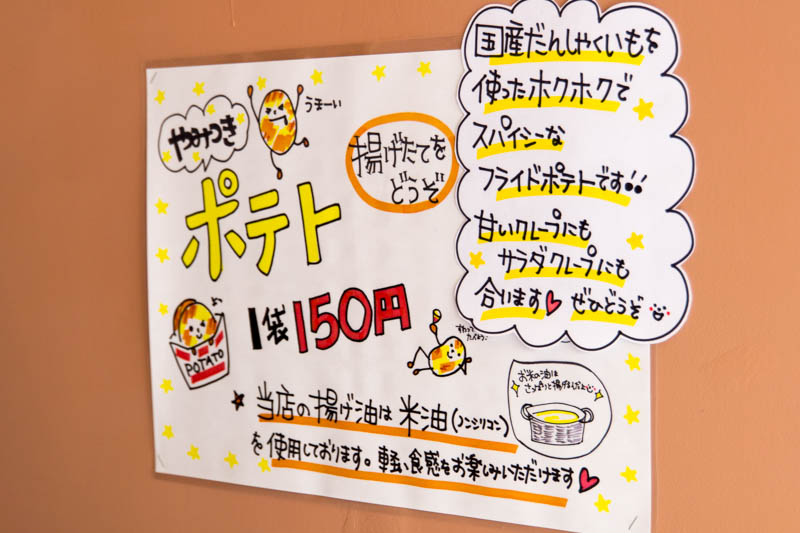 やみつき
うまーい
ポテト
揚げたてを
どうぞ
1袋150円
POTATO
国産だんしゃくいもを
使ったホクホクで
スパイシーな
フライドポテトです!!
甘いクレープにも
サラダクレープにも
合います♥ ぜひどうぞ
お米の油は
さっぱりと揚げ
★当店の揚げ油は米油(ノンシリコン)
を使用しております。軽い食感をお楽しみいただけます♥